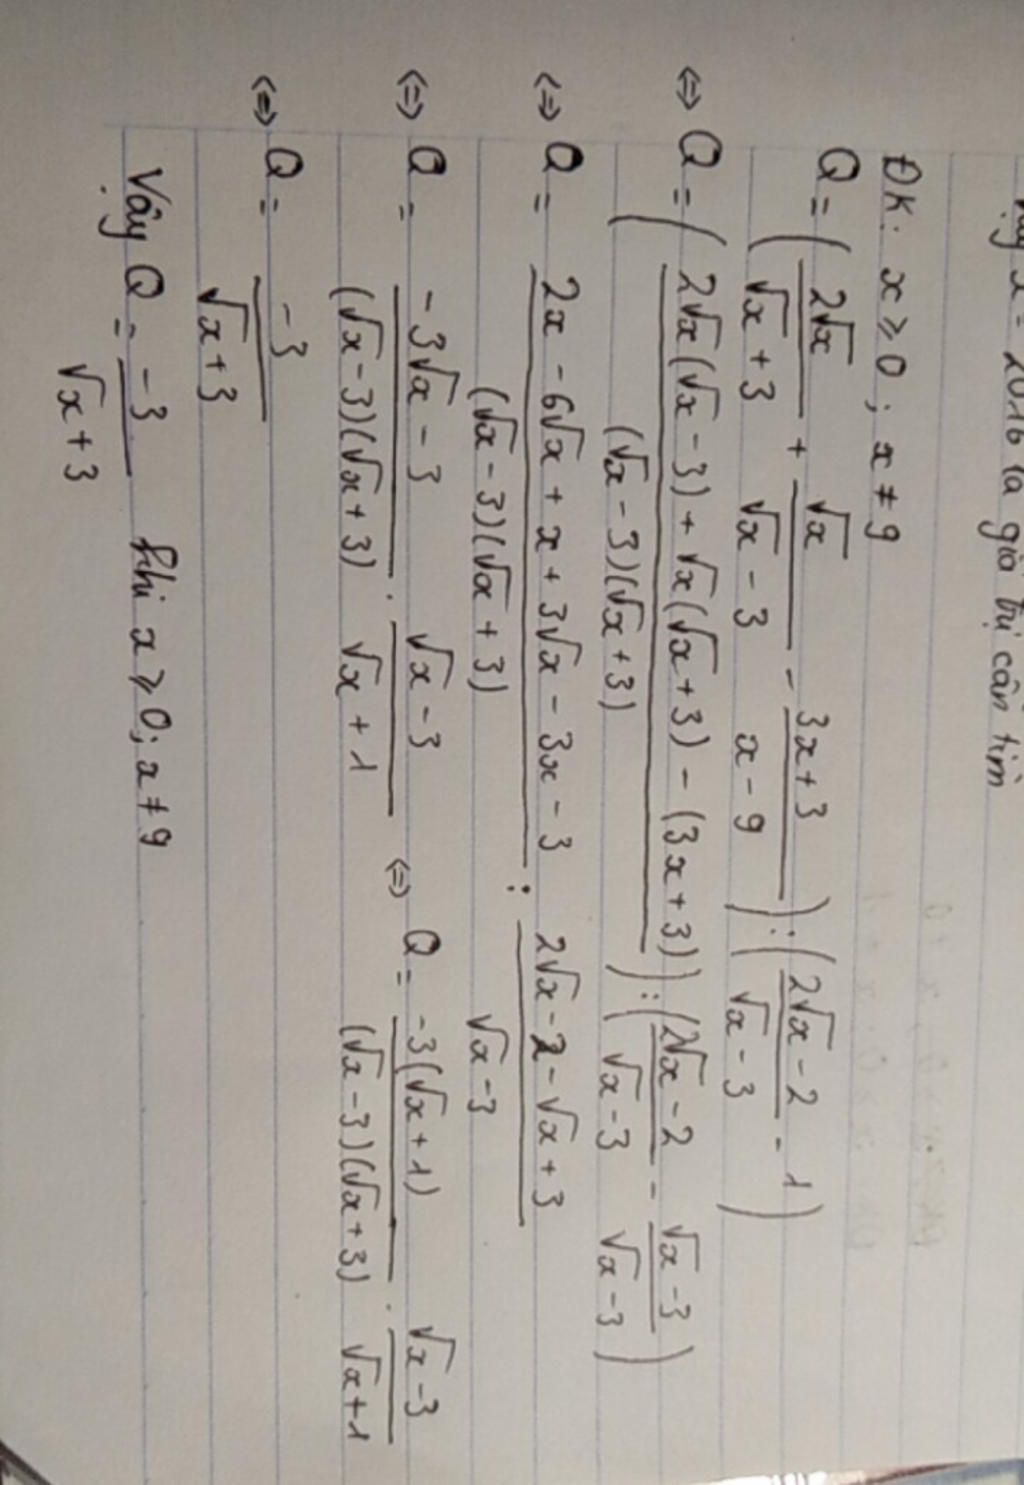 x = 2016 là giá trị cần tìm
ĐK: x ≥ 0; x ≠ 9
Q = (2√x/(√x + 3) + √x/(√x - 3) - (3x + 3)/(x - 9)) : ((2√x - 2)/(√x - 3) - 1)
⇔ Q = ((2√x(√x - 3) + √x(√x + 3) - (3x + 3))/((√x - 3)(√x + 3))) : ((2√x - 2)/(√x - 3) - (√x - 3)/(√x - 3))
⇔ Q = (2x - 6√x + x + 3√x - 3x - 3)/((√x - 3)(√x + 3)) : (2√x - 2 - √x + 3)/(√x - 3)
⇔ Q = (-3√x - 3)/((√x - 3)(√x + 3)) . (√x - 3)/(√x + 1) ⇔ Q = -3(√x + 1)/((√x - 3)(√x + 3)) . (√x - 3)/(√x + 1)
⇔ Q = -3/(√x + 3)
Vậy Q = -3/(√x + 3) khi x ≥ 0; x ≠ 9